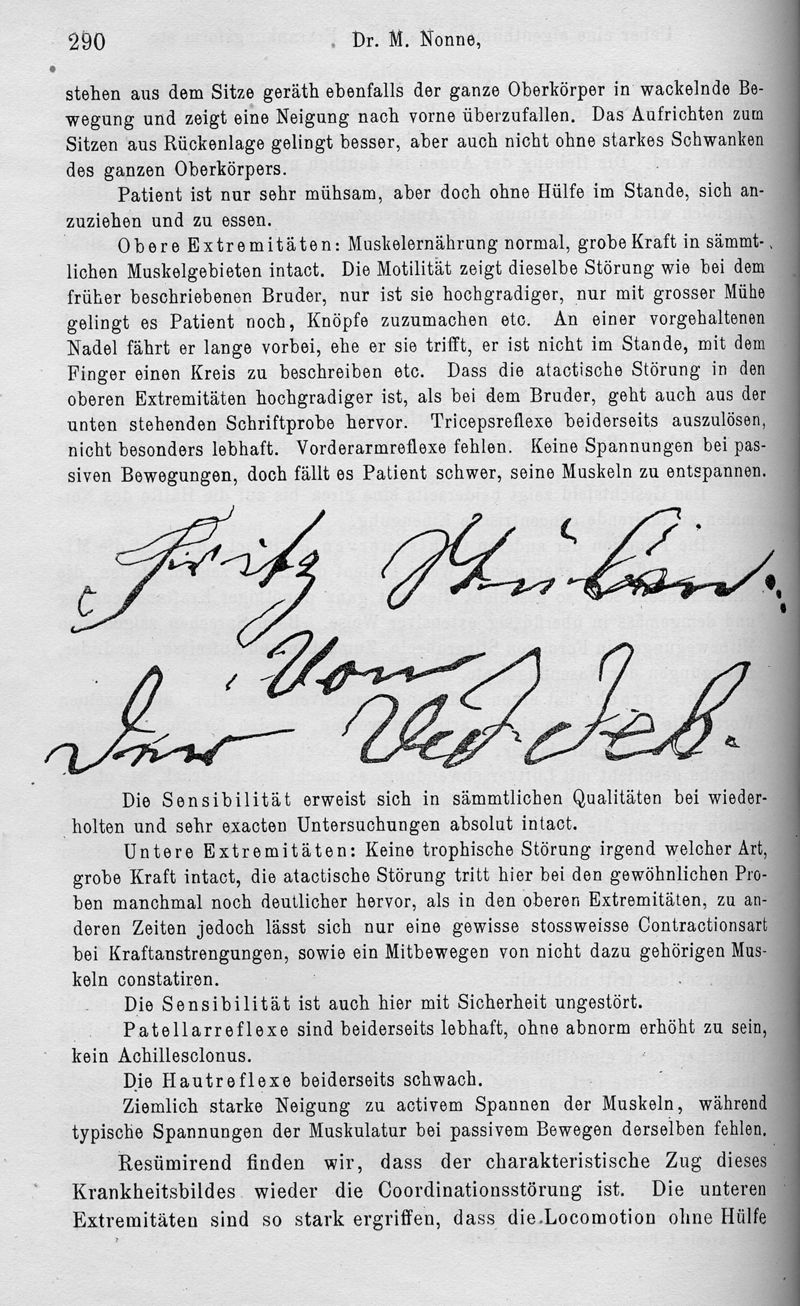 290
Dr. M. Nonne,
stehen aus dem Sitze geräth ebenfalls der ganze Oberkörper in wackelnde Be-
wegung und zeigt eine Neigung nach vorne überzufallen. Das Aufrichten zum
Sitzen aus Rückenlage gelingt besser, aber auch nicht ohne starkes Schwanken
des ganzen Oberkörpers.
Patient ist nur sehr mühsam, aber doch ohne Hülfe im Stande, sich an-
zuziehen und zu essen.
Obere Extremitäten: Muskelernährung normal, grobe Kraft in sämmt-
lichen Muskelgebieten intact. Die Motilität zeigt dieselbe Störung wie bei dem
früher beschriebenen Bruder, nur ist sie hochgradiger, nur mit grosser Mühe
gelingt es Patient noch, Knöpfe zuzumachen etc. An einer vorgehaltenen
Nadel fährt er lange vorbei, ehe er sie trifft, er ist nicht im Stande, mit dem
Finger einen Kreis zu beschreiben etc. Dass die atactische Störung in den
oberen Extremitäten hochgradiger ist, als bei dem Bruder, geht auch aus der
unten stehenden Schriftprobe hervor. Tricepsreflexe beiderseits auszulösen,
nicht besonders lebhaft. Vorderarmreflexe fehlen. Keine Spannungen bei pas-
siven Bewegungen, doch fällt es Patient schwer, seine Muskeln zu entspannen.
Fritz
Von
Die Sensibilität erweist sich in sämmtlichen Qualitäten bei wieder-
holten und sehr exacten Untersuchungen absolut intact.
Untere Extremitäten: Keine trophische Störung irgend welcher Art,
grobe Kraft intact, die atactische Störung tritt hier bei den gewöhnlichen Pro-
ben manchmal noch deutlicher hervor, als in den oberen Extremitäten, zu an-
deren Zeiten jedoch lässt sich nur eine gewisse stossweisse Contractionsart
bei Kraftanstrengungen, sowie ein Mitbewegen von nicht dazu gehörigen Mus-
keln constatiren.
Die Sensibilität ist auch hier mit Sicherheit ungestört.
Patellarreflexe sind beiderseits lebhaft, ohne abnorm erhöht zu sein,
kein Achillesclonus.
Die Hautreflexe beiderseits schwach.
Ziemlich starke Neigung zu activem Spannen der Muskeln, während
typische Spannungen der Muskulatur bei passivem Bewegen derselben fehlen.
Resümirend finden wir, dass der charakteristische Zug dieses
Krankheitsbildes wieder die Coordinationsstörung ist. Die unteren
Extremitäten sind so stark ergriffen, dass die Locomotion ohne Hülfe